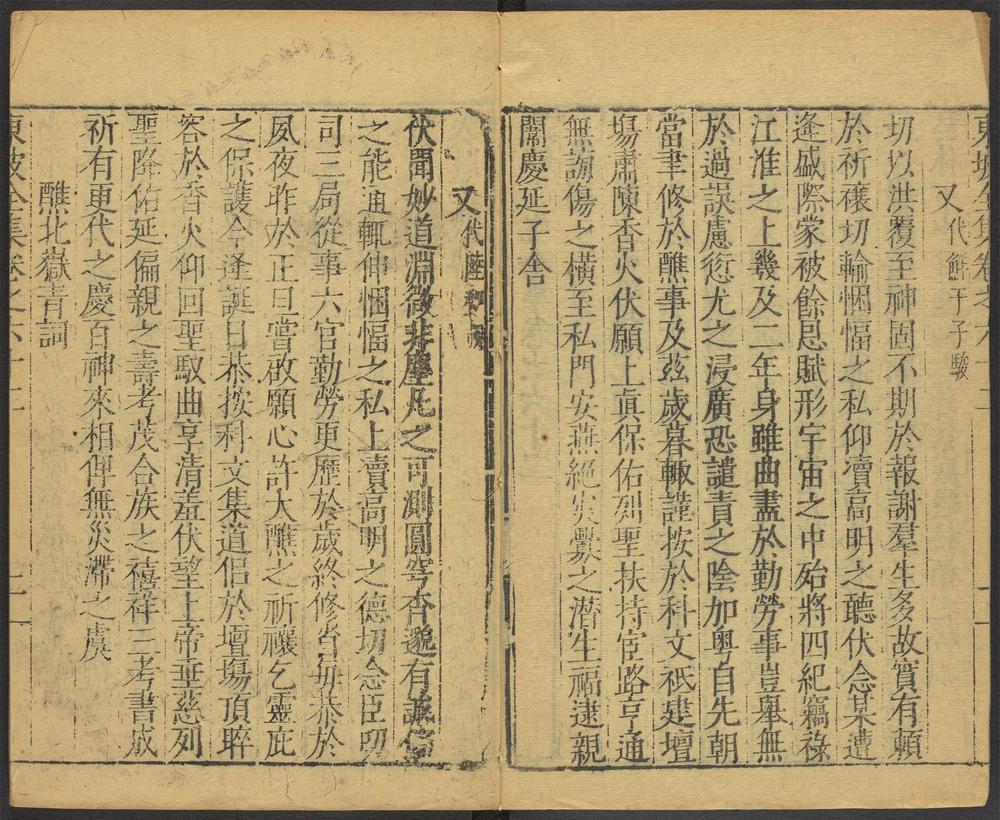 東坡全集卷之六十二
又代鮮于子駿
切以洪覆至神固不期於報謝羣生多故實有賴
於祈禳切輸悃愊之私仰凟高明之聽伏念某遭
逢盛際蒙被餘恩賦形宇宙之中殆將四紀竊祿
江淮之上幾及二年身雖曲盡於勤勞事豈舉無
於過誤慮愆尤之浸廣恐譴責之陰加粤自先朝
當聿修於醮事及茲歲暮輙謹按於科文祇建壇
塲肅陳香火伏願上真保佑列聖扶持宦路亨通
無謝傷之橫至私門安燕絕災釁之潜生福逮親
闈慶延子舍
又代陸
伏聞妙道淵微非塵凡之可測圓穹杳邈有誠信
之能通輒伸悃愊之私上瀆高明之德切念臣叨
司三局從事六官勤勞更歷於歲終修省每恭於
夙夜昨於正旦嘗啟願心許大醮之祈禳乞靈庇
之保護今逢誕日恭按科文集道侣於壇塲頂睟
容於香火仰回聖馭曲享清羞伏望上帝垂慈列
聖降佑延偏親之壽考茂合族之禧祥三考書成
祈有更代之慶百神來相俾無災滯之虞
醮北嶽青詞
東坡全集卷之六十二